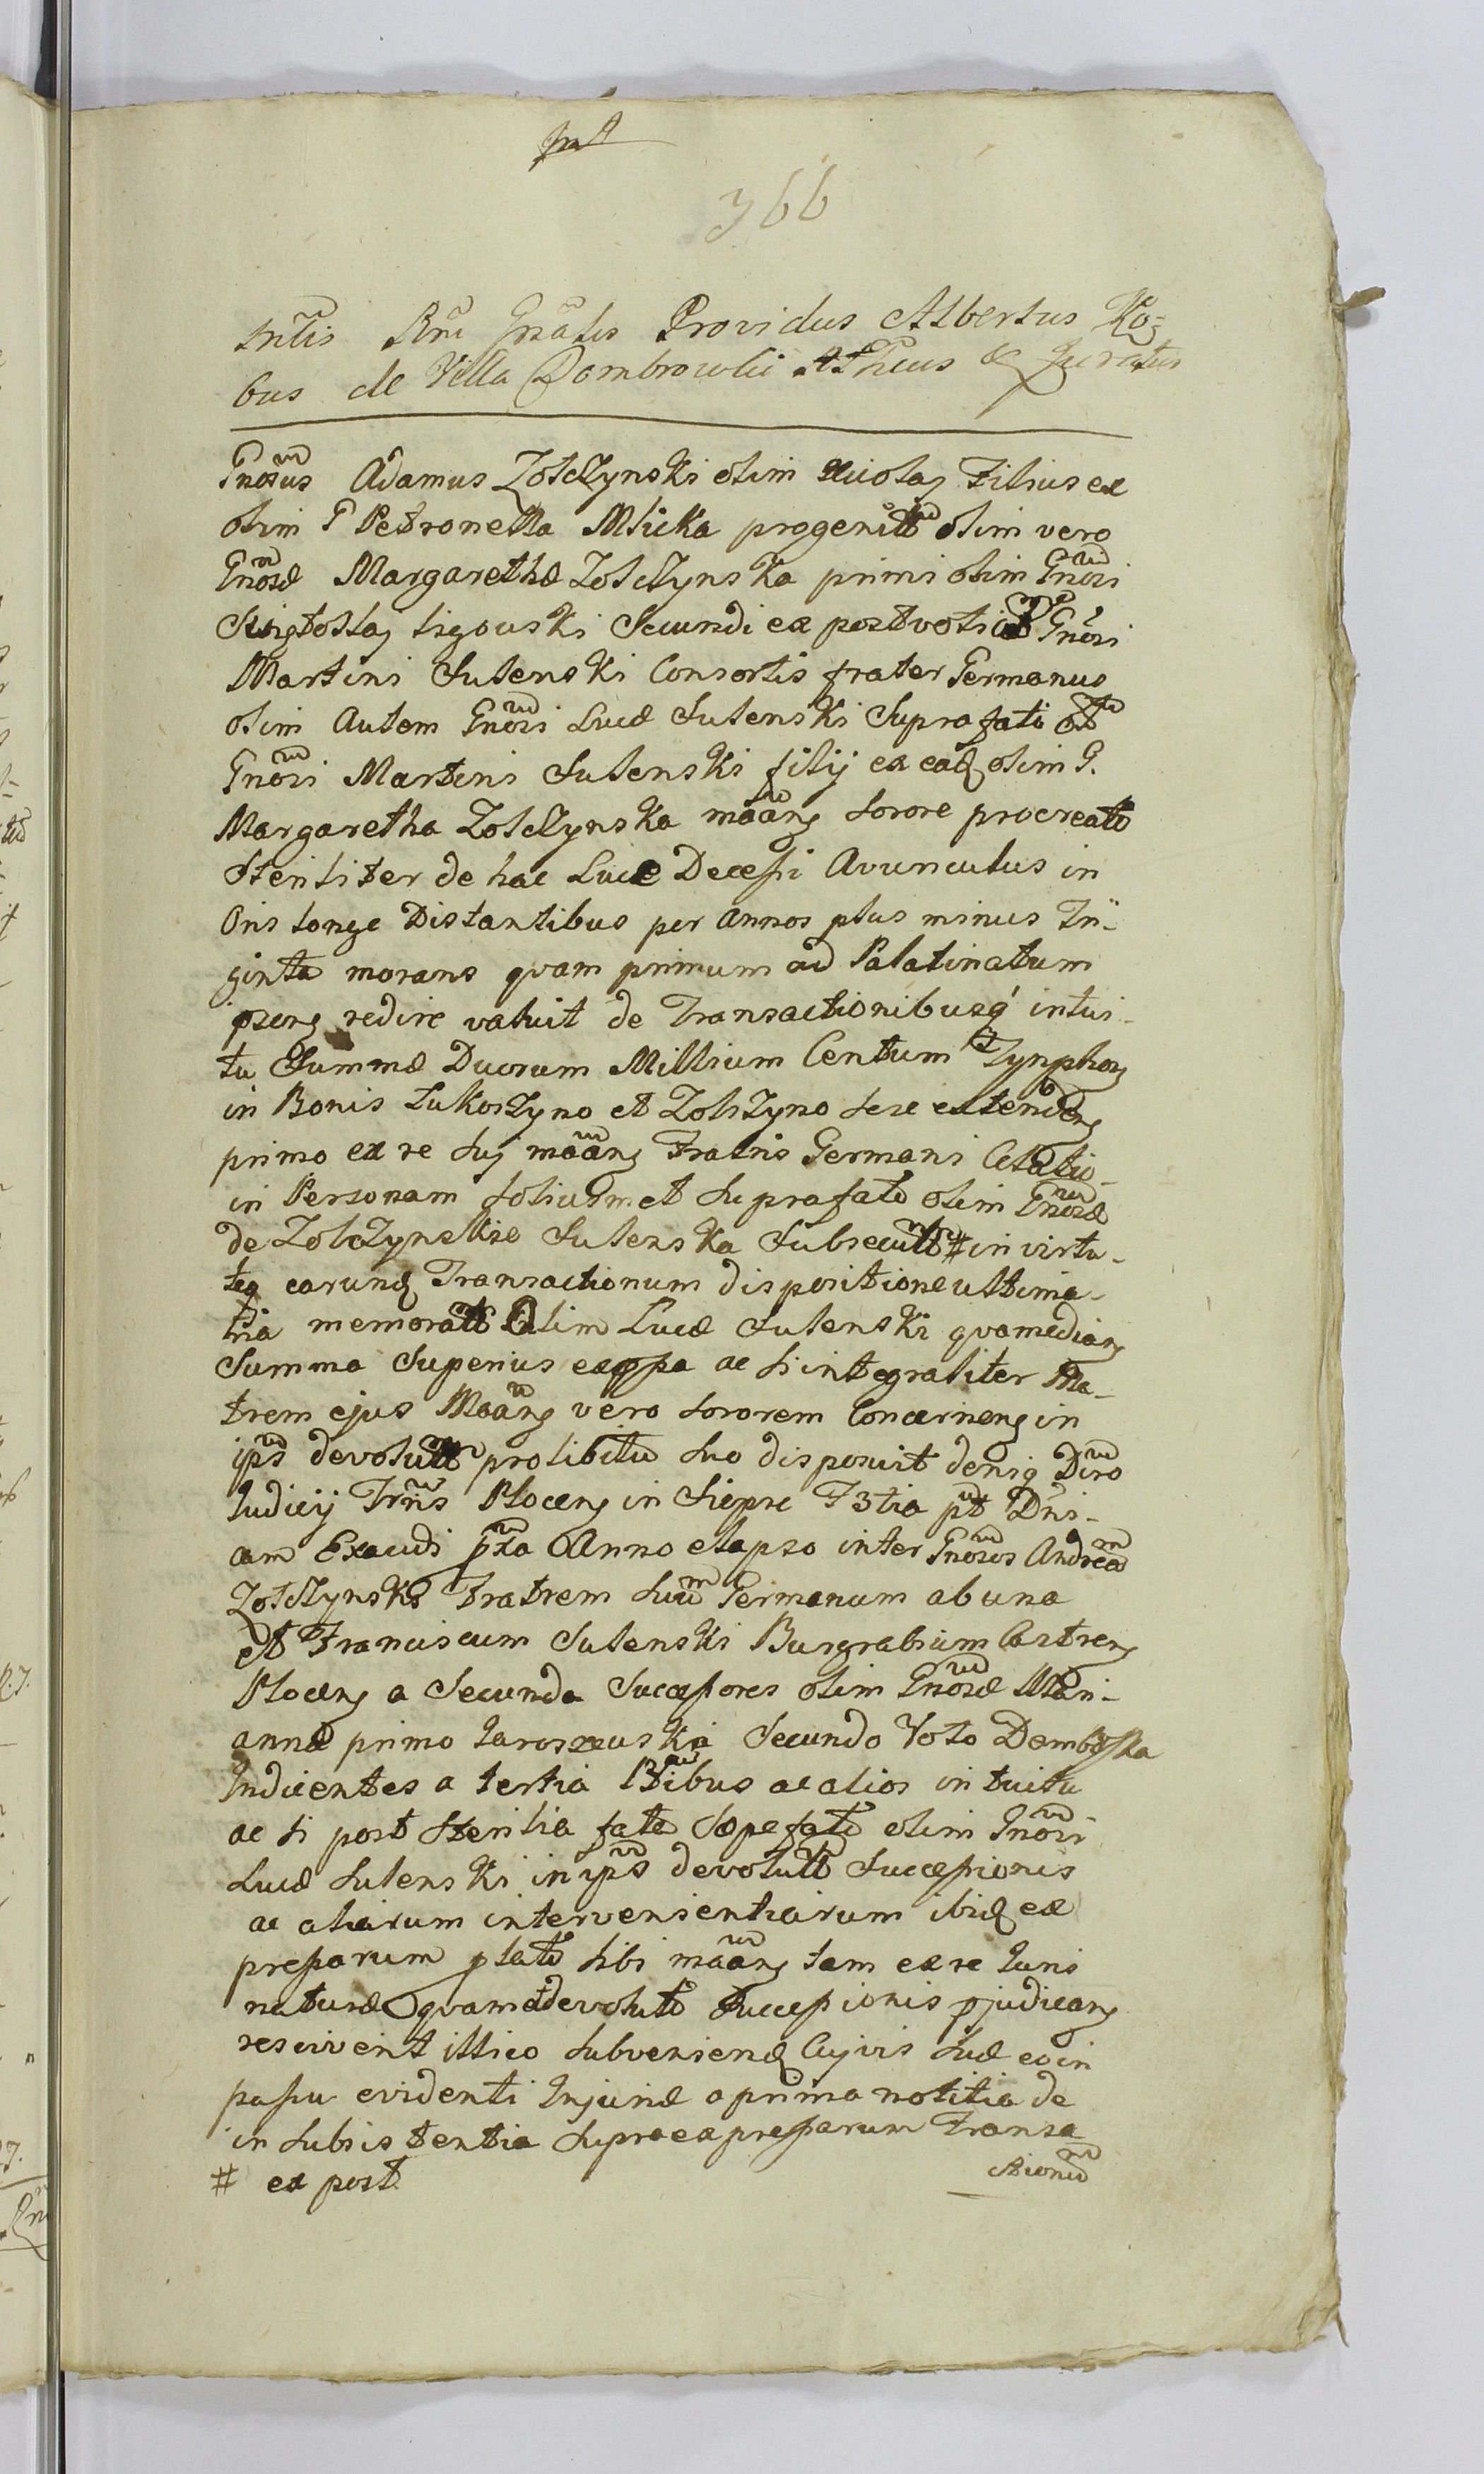 366
Providus Albertus Ko=
bus de Villa Dombrowki & Juratus
Gnosus Adamus Zolczynski olim Filius ex
olim G Petronella Mlicka progenito olim vero
Gnosæ Margarethæ Zolczynska primi olim Gnosi
Ligowski Secundi ex post voti Gnosi
Martini Sulenski Consortis frater Germanus
olim Autem Gnosi Lucæ Sulenski Suprafati
Gnosi Martini Sulenski filij ex ead olim G.
Margaretha Zolczynska maang Sorore procreato
Steriliter de hac Luce Decessi Avunculus in
Oris longe Distantibus per annos plus minus Tri-
ginta morans quam primum ad Palatinatum
pseng redire valuit de Transactionibusq intui-
tu Summæ Duorum Millium Centum Tynphong
in Bonis Lukoszyno et Zolczyno sese extendeng
primo ex re suj maang Fratris Germani
in Personam solius met suprafato olim Gnosæ
de Zolczynskie Sulenska Subsecuto # in virtu-
teq earund Transactionum dispositione ultima-
ria memorato Olim Lucæ Sulenski qvomediang
Summa Superius ac si integraliter Ma-
trem ejus Maang vero Sororem Concerneng in
ips devoluto pro libitu suo disposuit deniq Diro
Judicij Trnis Ploceng in Sieprc F 3tia pt Dni-
cam Exaudi pxa Anno elapso inter Gnosos Andream
Zolczynski Fratrem suum Germanum ab una
et Franciscum Sulenski Burgrabium Castreng
Ploceng a Secunda Successores olim Gnosæ Mari-
annæ primo Secundo Voto Dembska
Indicentes a tertia Ptibus ac alios intuitu
ac si post Sterilia fata sæpefato olim Gnosi
Lucæ Sulenski in ips devoluto Successionis
ac aliarum intervenientiarum ibid ex
pressarum plato sibi maang tam ex re Juris
naturæ qvam et devoluto Successionis pjudicang
rescivent illico Subveniend Cujvis suæ eo in
passu evidenti Injuriæ a prima notitia de
in subsistentia supra expressarum Transa
# ex post
ctionu